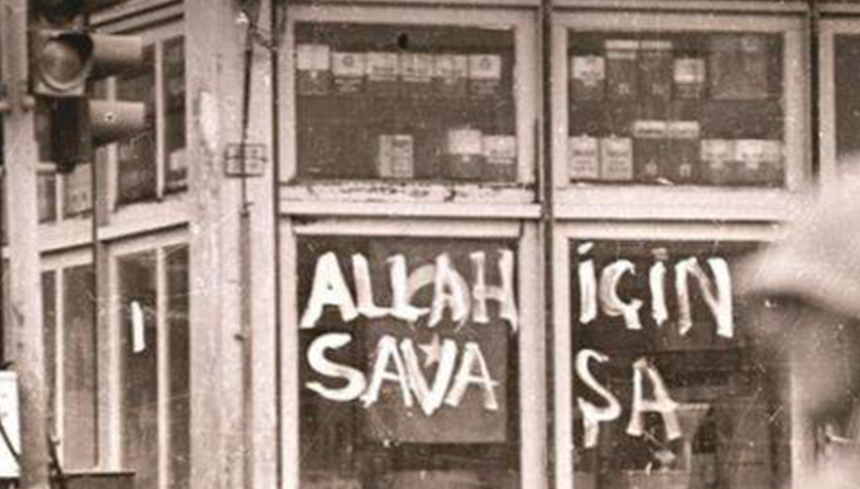 ALLAH İÇİN
SAVA ŞA